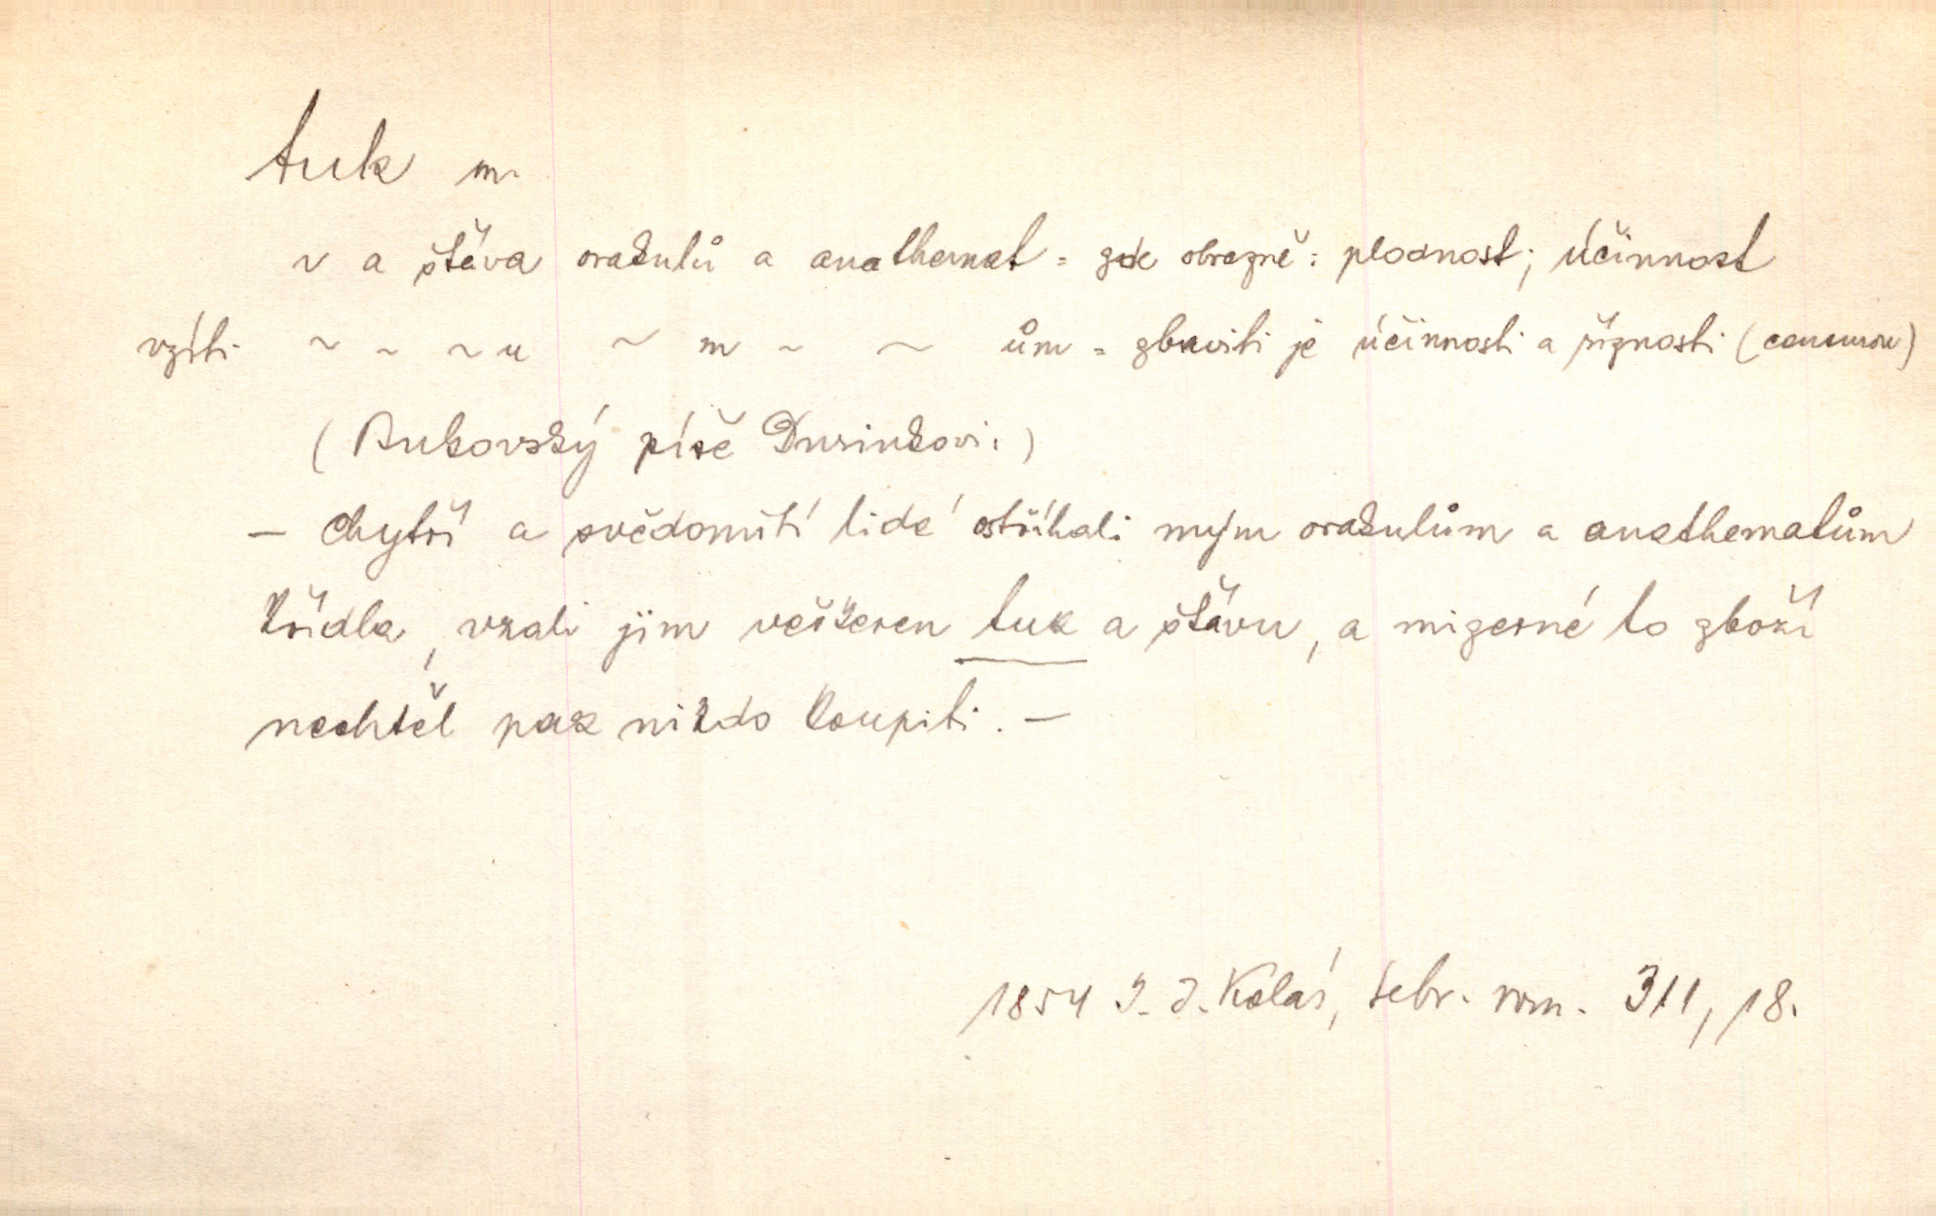 tuk m.
~ a šťáva orakulů a anathemat = zde obrazně: plodnost; účinnost
vzíti ~ ~ ~ u ~ m ~ ~ ům = zbaviti je účinnosti a říznosti
(Bukovský píše Durinkovi.)
— Chytří a svědomití lidé ostříhali mým orakulům a anathematům
křídla, vzali jim veškeren tuk a šťávu, a mizerné to zboží
nechtěl pak nikdo koupiti. —
1854 J. J. Kolár, Sebr. rom. 311, 18.